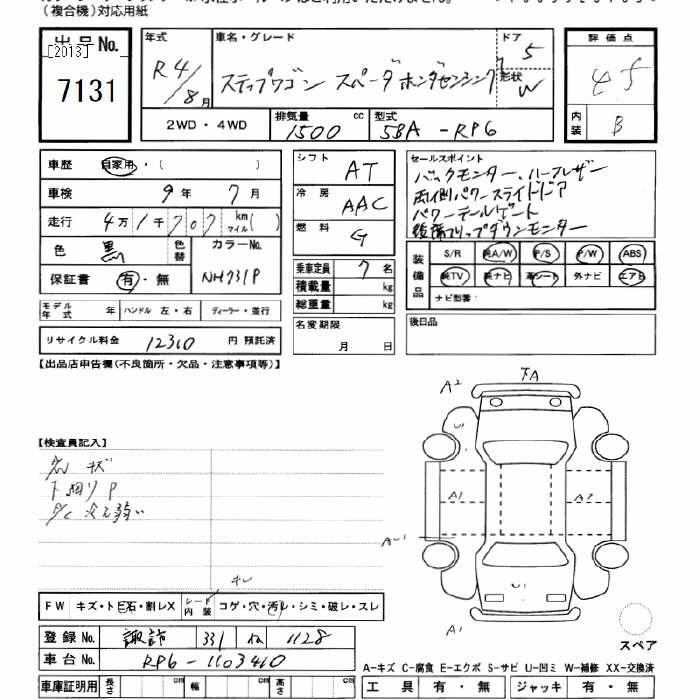 (複合機)対応用紙
出品No.
[2013]
7131
年式 R4/8月
車名・グレード ステップワゴン スパーダ ホンダセンシング
ドア 5
形状 W
評価点 4.5
内装 B
2WD・4WD
排気量 1500 cc
型式 5BA-RP6
車歴 自家用・( )
車検 9年 7月
走行 4万1千707 km マイル( )
色 黒
色替
カラーNo. NH731P
保証書 有・無
モデル年式 年
ハンドル 左・右
ディーラー・並行
リサイクル料金 12310 円 預託済
シフト AT
冷房 AAC
燃料 G
乗車定員 7 名
積載量 kg
総重量 kg
名変期限 月 日
セールスポイント
バックモニター、ハーフレザー
両側パワースライドドア
パワーテールゲート
後席フリップダウンモニター
装備品
S/R 純A/W P/S P/W ABS
純TV 純ナビ 革シート 外ナビ エアB
ナビ型番:
後日品
【出品店申告欄(不良箇所・欠品・注意事項等)】
【検査員記入】
下廻りP
A2
下A
U1
A1
A2
U1
A1
FW キズ・トビ石・割レX
シート内装 コゲ・穴・汚レ・シミ・破レ・スレ
登録No. 諏訪 331 ね 1128
車台No. RP6-1103410
車庫証明用 長さ cm 幅 cm 高さ cm
スペア
A-キズ C-腐食 E-エクボ S-サビ U-凹ミ W-補修 XX-交換済
工具 有・無 ジャッキ 有・無